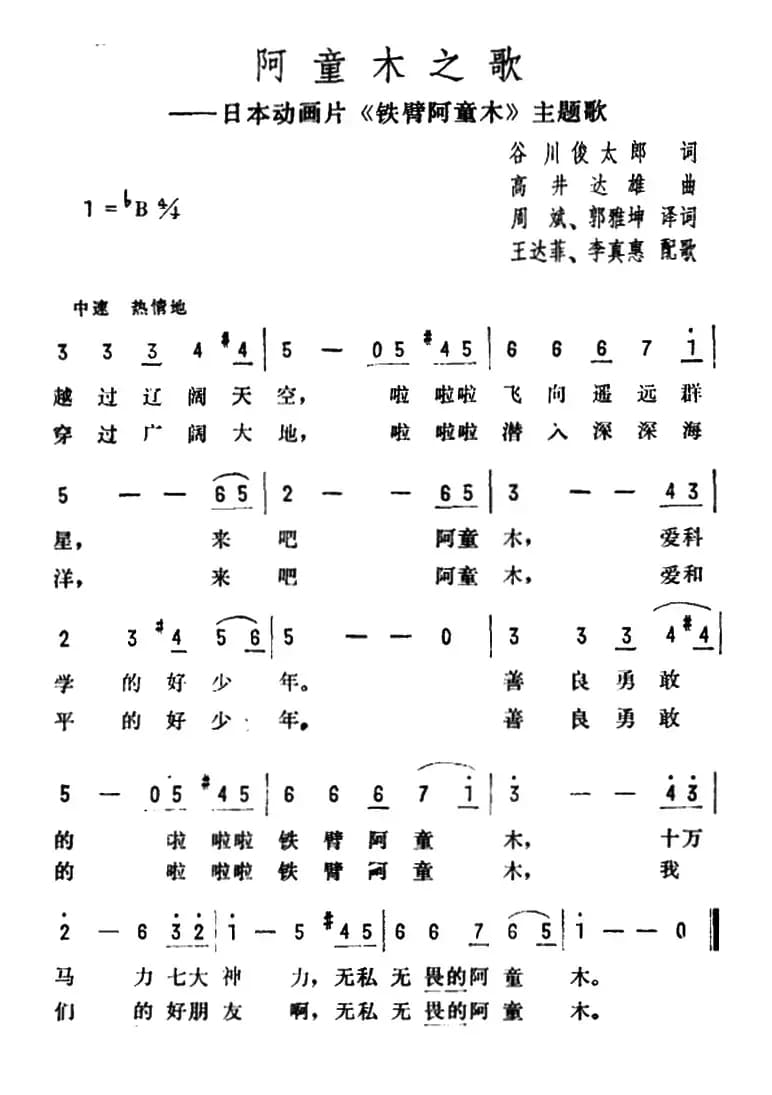 阿童木之歌
——日本动画片《铁臂阿童木》主题歌
谷川俊太郎 词
高井达雄 曲
1=♭B 4/4
周斌、郭雅坤 译词
王达菲、李真惠 配歌
中速 热情地
3 3 3 4 #4 | 5 — 05 #45 | 6 6 6 7 i |
越过辽阔天空, 啦 啦啦飞向遥远群
穿过广阔大地, 啦 啦啦潜入深深海
5 — — 65 | 2 — — 65 | 3 — — 43 |
星, 来吧 阿童木, 爱科
洋, 来吧 阿童木, 爱和
2 3 #4 5 6 | 5 — — 0 | 3 3 3 4 #4 |
学的好少年。 善良勇敢
平的好少年。 善良勇敢
5 — 05 #45 | 6 6 6 7 i | 3 — — 43 |
的 啦 啦啦铁臂阿童木, 十万
的 啦 啦啦铁臂阿童木, 我
2 — 6 32 | i — 5 #45 | 6 6 7 65 | i — — 0 ‖
马力七大神力,无私无畏的阿童木。
们的好朋友啊,无私无畏的阿童木。